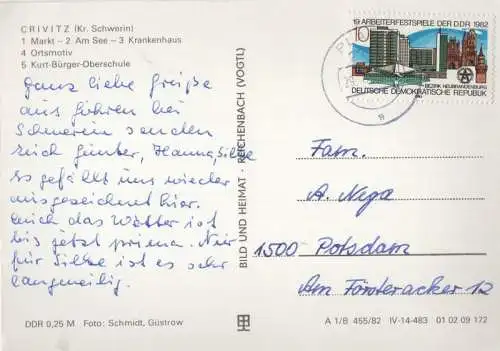 CRIVITZ (Kr. Schwerin)
1 Markt – 2 Am See – 3 Krankenhaus
4 Ortsmotiv
5 Kurt-Bürger-Oberschule
ganz liebe Grüße
aus Göhren bei
Schwerin senden
Euch Günter, Hanna, Silke
Es gefällt uns wieder
ausgezeichnet hier.
Auch das Wetter ist
bis jetzt prima. Nur
für Silke ist es sehr
langweilig.
DDR 0,25 M Foto: Schmidt, Güstrow
BILD UND HEIMAT · REICHENBACH (VOGTL)
19. ARBEITERFESTSPIELE DER DDR 1982
10
BEZIRK NEUBRANDENBURG
DEUTSCHE DEMOKRATISCHE REPUBLIK
a
Fam.
A. Nega
1500 Potsdam
Am Försteracker 12
A 1/B 455/82 IV-14-483 01 02 09 172